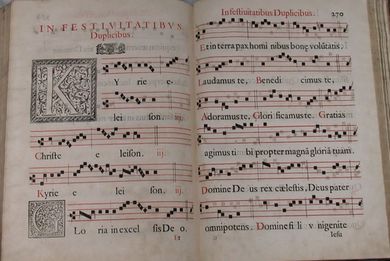 IN FESTIVITATIBVS
Duplicibus.
KYrie e-
lei son. iij.
Christe e leison. iij.
Kyrie e lei son. iij.
GLoria in excel sis De o.
In festiuitatibus Duplicibus. 270
Et in terra pax homi nibus bonę volūtatis.
Laudamus te. Benedi cimus te,
Adoramus te, Glori ficamus te. Gratiās
agimus ti bi propter magnā gloriā tuam.
Domine De us rex cælestis, Deus pater
omnipotens. Domine fi li v nigenite
Iesu